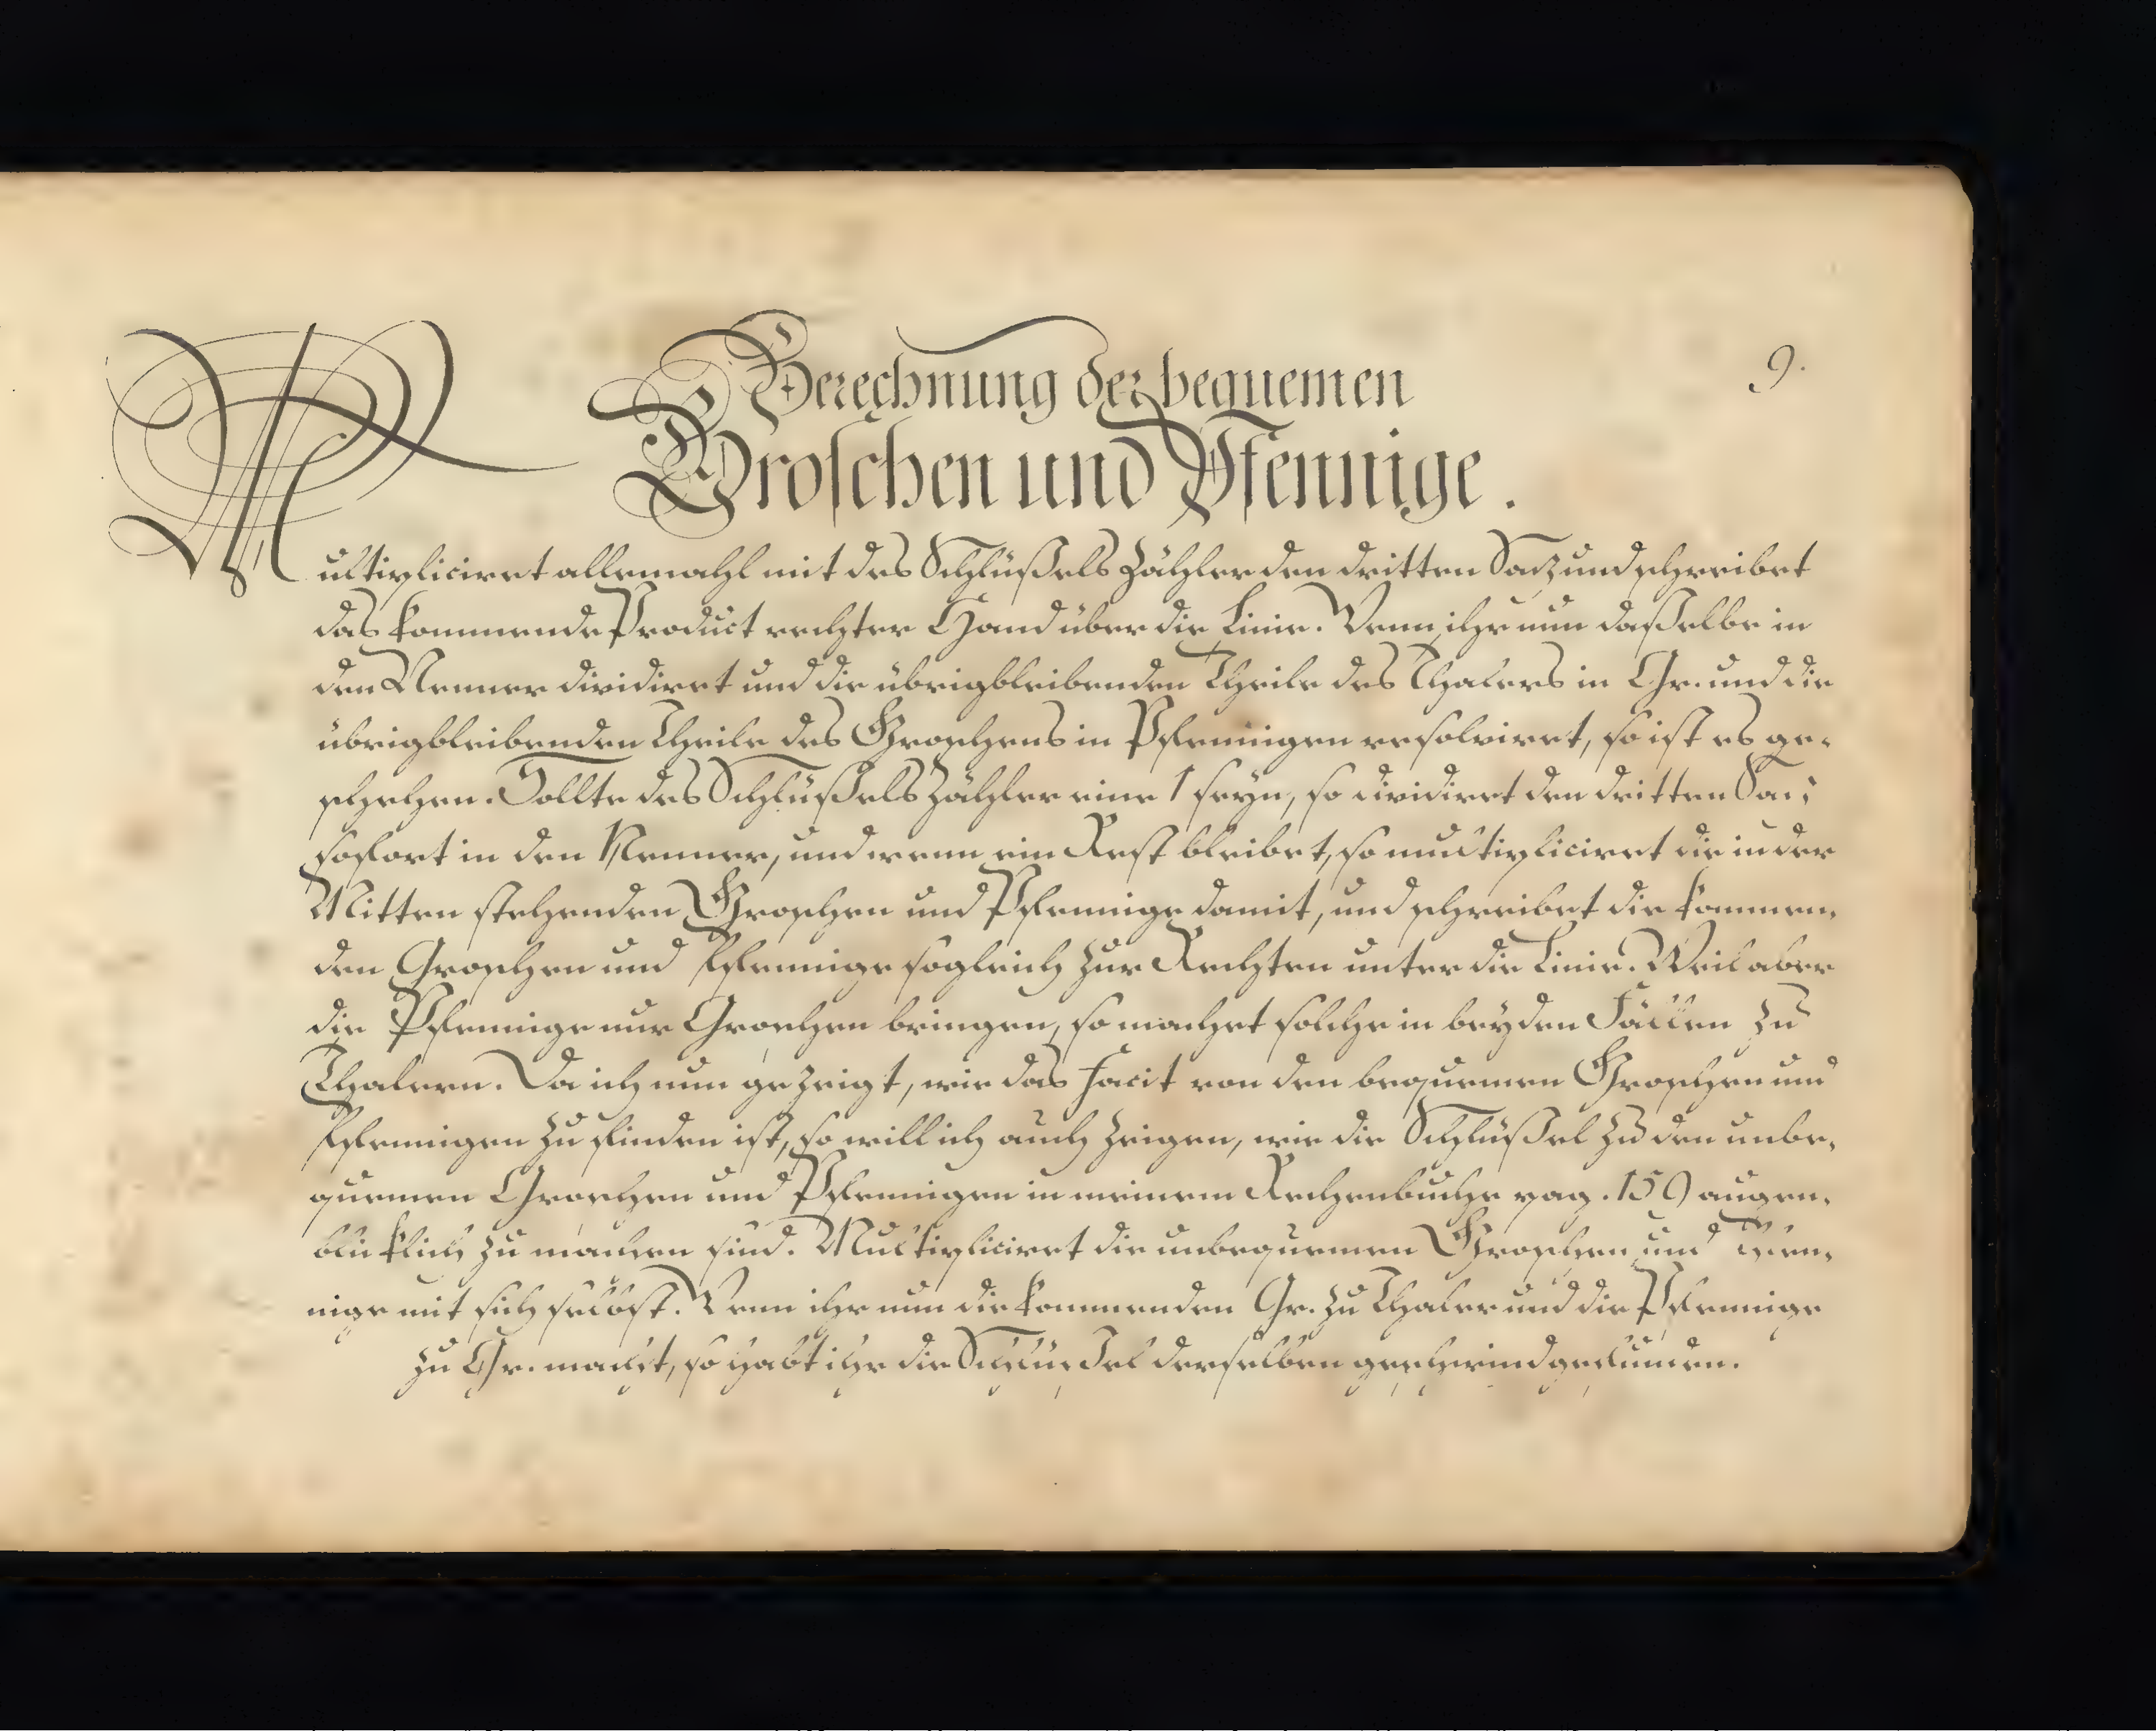 9.
Berechnung der bequemen
Groschen und Pfennige.
Multipliciret allemahl mit des Schlüßels Zähler den dritten Satz und schreibet
das kommende Product rechter Hand über die Linie. Wenn ihr nun daßelbe in
den Nenner dividiret und die übrigbleibenden Theile des Thalers in Gr. und die
übrigbleibenden Theile des Groschens in Pfennigen resolviret, so ist es ge-
schehen. Sollte des Schlüßels Zähler eine 1 seyn, so dividiret den dritten Satz
sofort in den Nenner, und wenn ein Rest bleibet, so multipliciret die in der
Mitten stehenden Groschen und Pfennige damit, und schreibet die kommen-
den Groschen und Pfennige sogleich zur Rechten unter die Linie. Weil aber
die Pfennige nur Groschen bringen, so machet solche in beyden Fällen zu
Thalern. Da ich nun gezeigt, wie das Facit von den bequemen Groschen und
Pfennigen zu finden ist, so will ich auch zeigen, wie die Schlüßel zu den unbe-
quemen Groschen und Pfennigen in meinem Rechenbuche pag. 159 augen-
blicklich zu machen sind. Multipliciret die unbequemen Groschen und Pfen-
nige mit sich selbst. Wenn ihr nun die kommenden Gr. zu Thaler und die Pfennige
zu Gr. macht, so habt ihr die Schlüßel derselben geschwind gefunden.